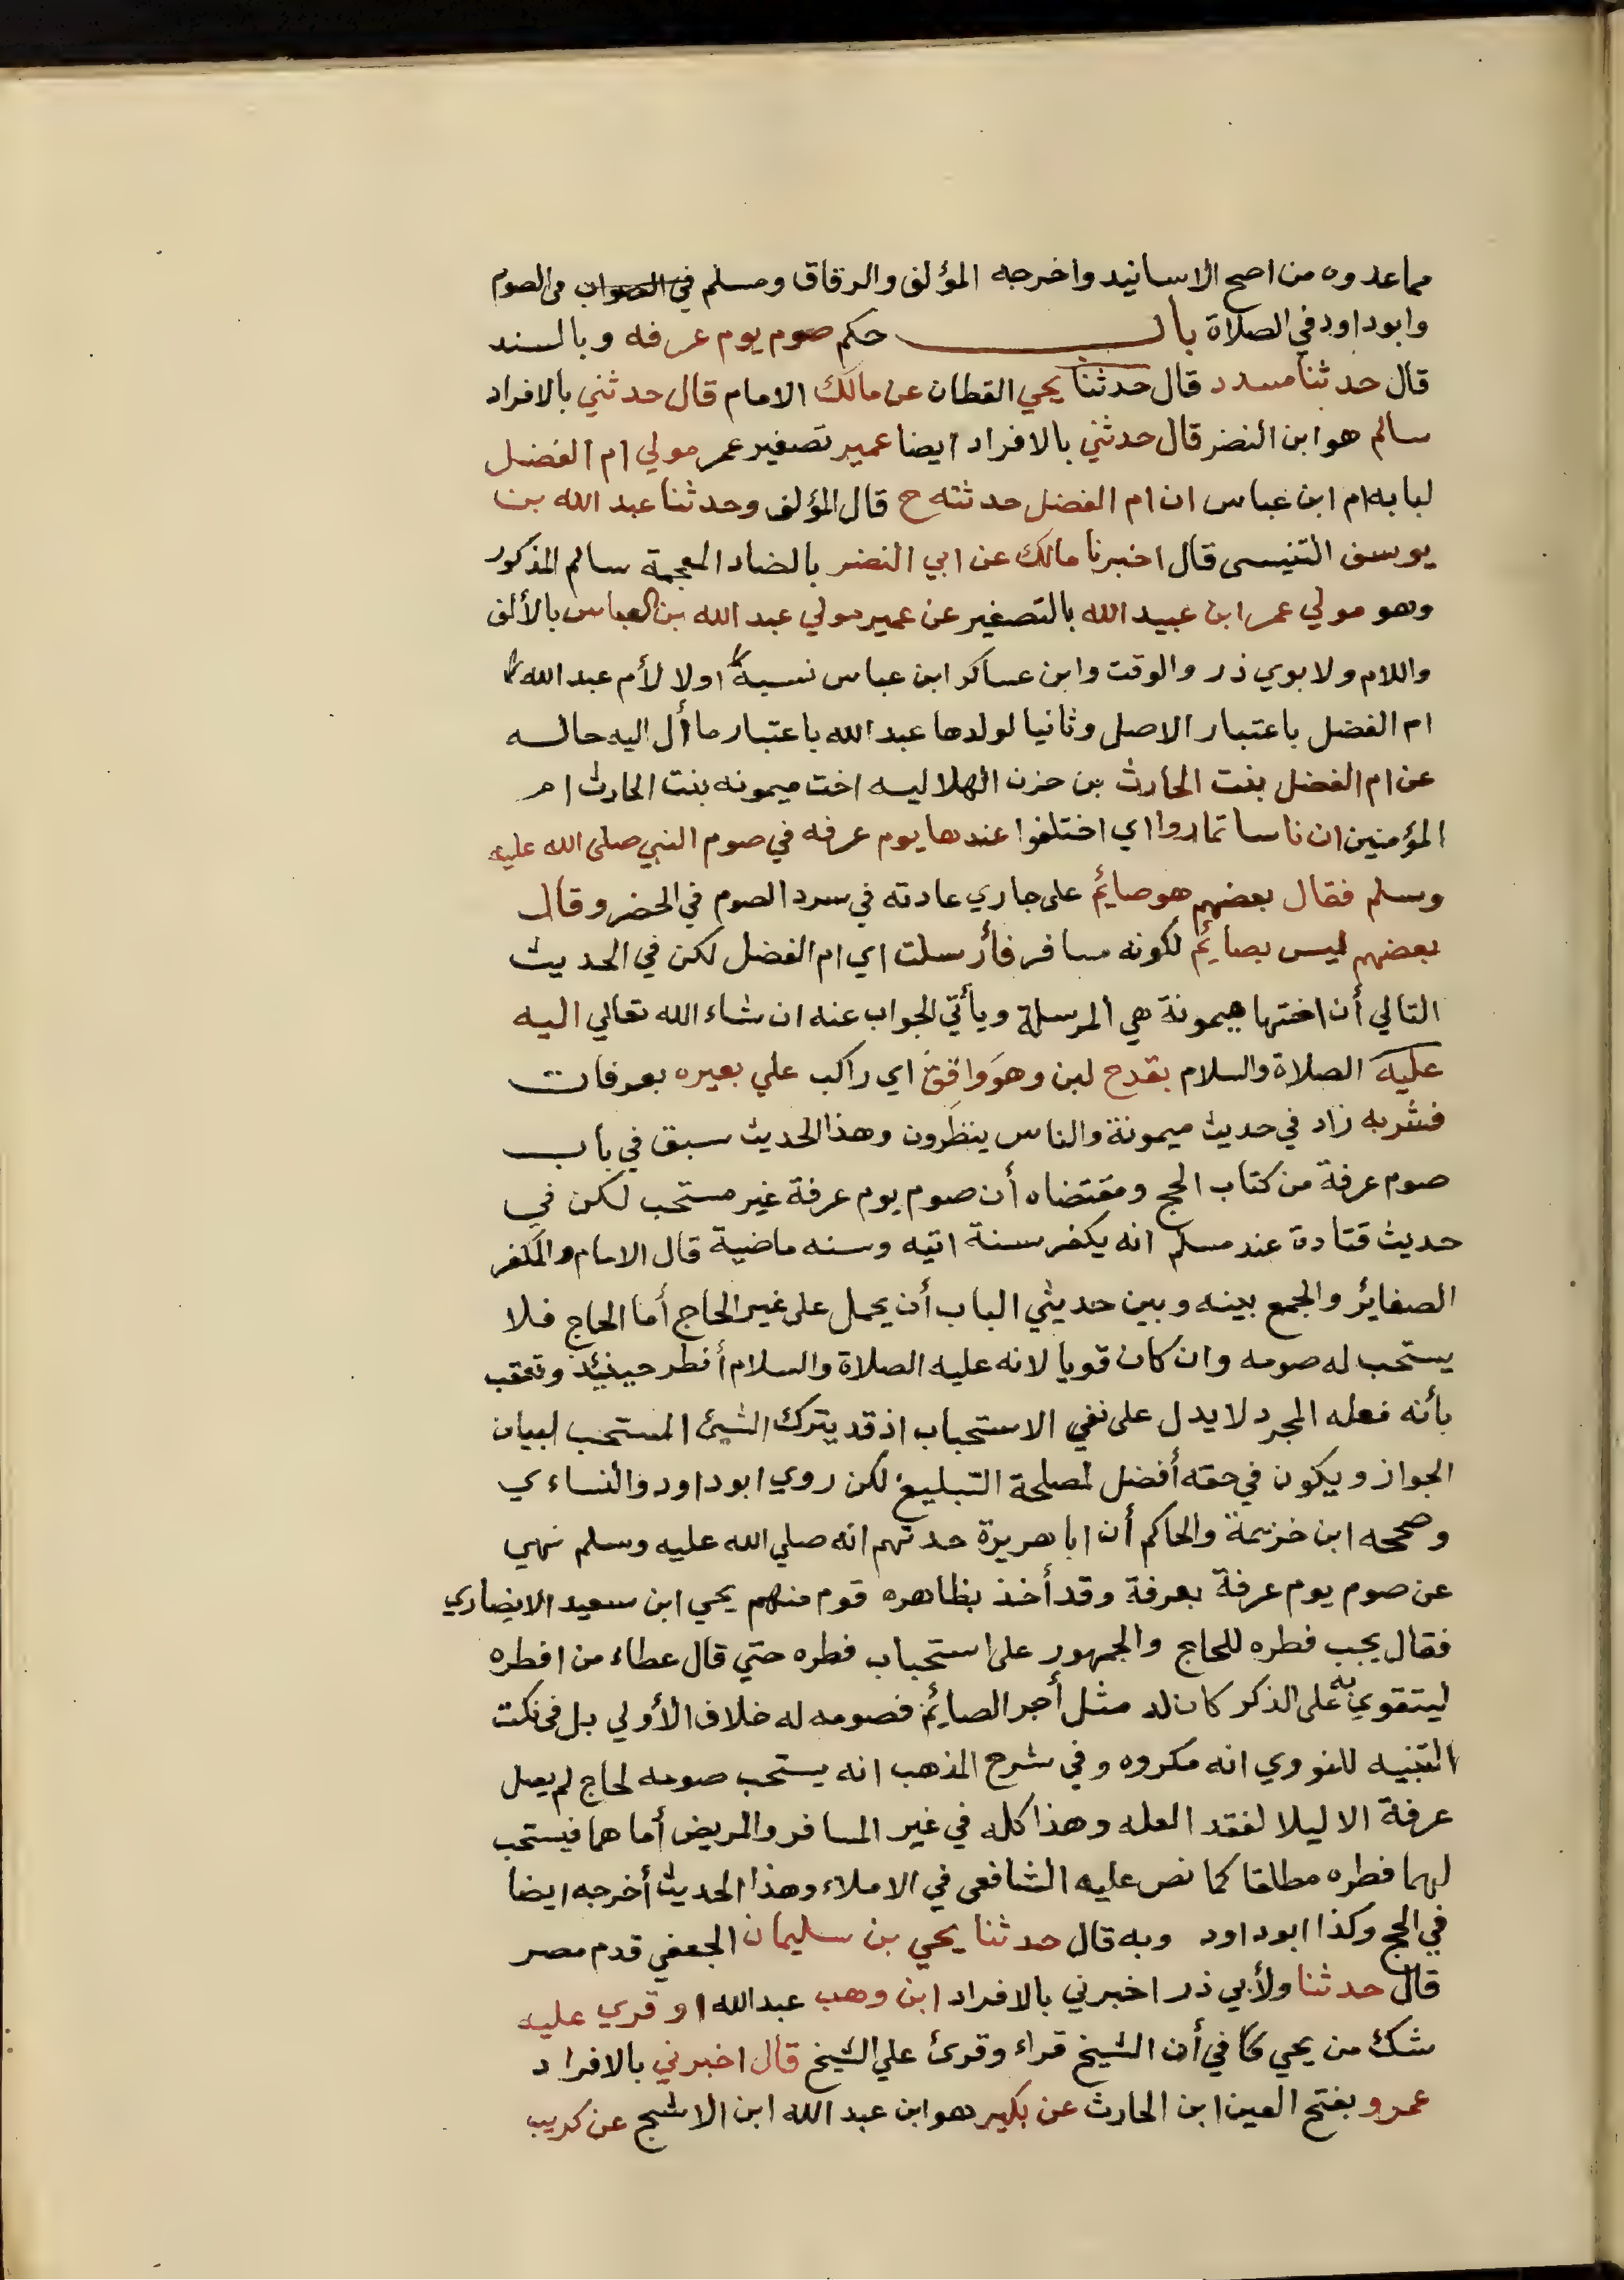 مما عدوه من اصح الاسانيد واخرجه المؤلف والرقاق ومسلم في الصوان في الصوم
وابوداود في الصلاة باب حكم صوم يوم عرفه وبالسند
قال حدثنا مسدد قال حدثنا يحي القطان عن مالك الامام قال حدثني بالافراد
سالم هو ابن النضر قال حدثني بالافراد ايضا عمير تصغير عمر مولي ام الفضل
لبابه ام ابن عباس ان ام الفضل حدثته ح قال المؤلف وحدثنا عبد الله بن
يوسف التنيسى قال اخبرنا مالك عن ابي النضر بالضاد المعجمة سالم المذكور
وهو مولي عمر ابن عبيد الله بالتصغير عن عمير مولي عبد الله بن العباس بالألف
واللام ولابوي ذر والوقت وابن عساكر ابن عباس نسبة اولا لأم عبد الله
ام الفضل باعتبار الاصل وثانيا لولدها عبد الله باعتبار ما أل اليه حاله
عن ام الفضل بنت الحارث بن حزن الهلاليه اخت ميمونه بنت الحارث ام
المؤمنين ان ناسا تماروا اي اختلفوا عندها يوم عرفه في صوم النبي صلى الله عليه
وسلم فقال بعضهم هو صائم على جاري عادته في سرد الصوم في الحضر وقال
بعضهم ليس بصائم لكونه مسافر فأرسلت اي ام الفضل لكن في الحديث
التالي أن اختها ميمونة هي المرسلة ويأتي الجواب عنه ان شاء الله تعالي اليه
عليه الصلاة والسلام بقدح لبن وهو واقف اي راكب علي بعيره بعرفات
فشربه زاد في حديث ميمونة والناس ينظرون وهذا الحديث سبق في باب
صوم عرفة من كتاب الحج ومقتضاه أن صوم يوم عرفة غير مستحب لكن في
حديث قتادة عند مسلم انه يكفر سنة اتيه وسنه ماضية قال الامام والمكفر
الصغاير والجمع بينه وبين حديثي الباب أن يحمل على غير الحاج أما الحاج فلا
يستحب له صومه وان كان قويا لانه عليه الصلاة والسلام أفطر حينئذ وتعقب
بأنه فعله المجرد لا يدل على نفي الاستحباب اذ قد يترك الشيئ المستحب لبيان
الجواز ويكون في حقه أفضل لمصلحة التبليغ لكن روي ابوداود والنساءي
وصححه ابن خزيمة والحاكم أن ابا هريرة حدثهم انه صلي الله عليه وسلم نهي
عن صوم يوم عرفة بعرفة وقد أخذ بظاهره قوم منهم يحي ابن سعيد الانصاري
فقال يجب فطره للحاج والجمهور على استحباب فطره حتي قال عطاء من افطره
ليتقوي به على الذكر كان له مثل أجر الصائم فصومه له خلاف الأولي بل في نكت
التنبيه للنووي انه مكروه وفي شرح المذهب انه يستحب صومه لحاج لم يصل
عرفة الا ليلا لفقد العله وهذا كله في غير المسافر والمريض أما هما فيستحب
لهما فطره مطلقا كما نص عليه الشافعى في الاملاء وهذا الحديث أخرجه ايضا
في الحج وكذا ابوداود وبه قال حدثنا يحي بن سليمان الجعفي قدم مصر
قال حدثنا ولأبي ذر اخبرني بالافراد ابن وهب عبدالله او قري عليه
شك من يحي كما في أن الشيخ قراء وقرئ علي الشيخ قال اخبرني بالافراد
عمرو بفتح العين ابن الحارث عن بكير هو ابن عبد الله ابن الاشج عن كريب